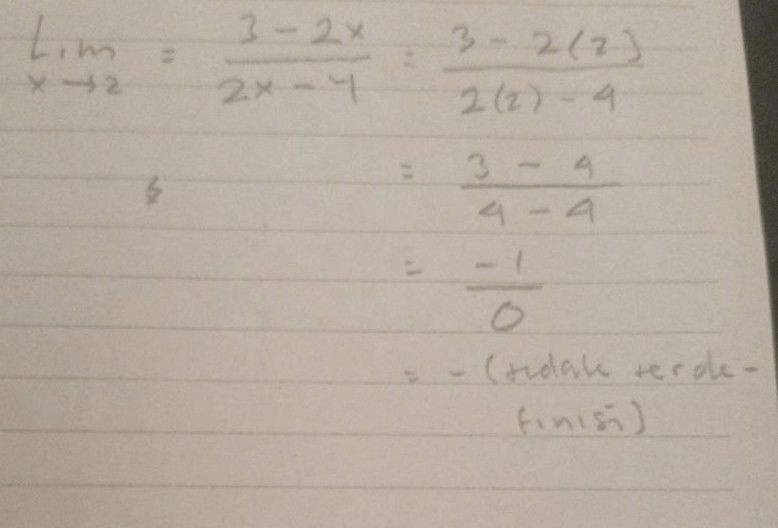 Lim = 3 - 2x / 2x - 4 = 3 - 2(2) / 2(2) - 4
x → 2
= 3 - 4 / 4 - 4
= -1 / 0
= - (tidak terde-
finisi)